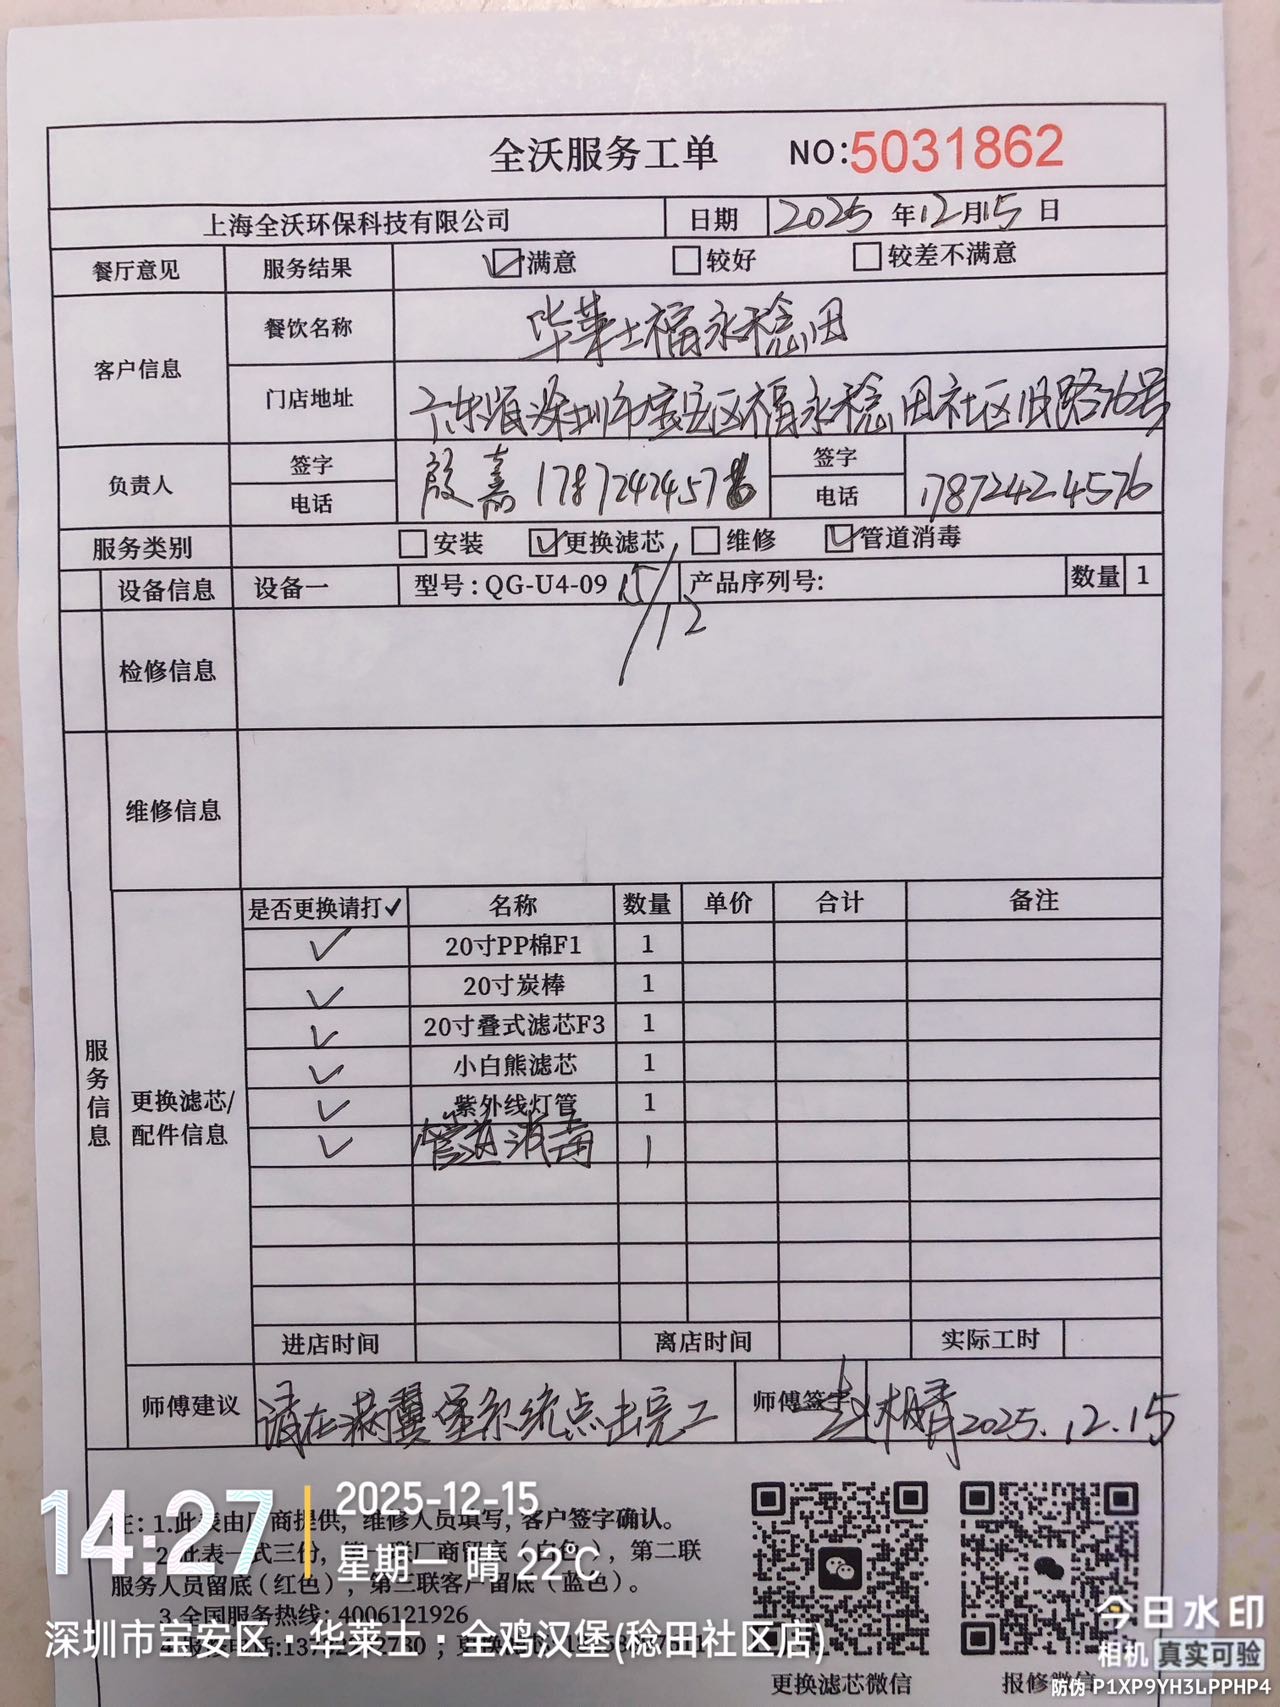 全沃服务工单 NO:5031862
上海全沃环保科技有限公司 日期 2025年12月15日
餐厅意见 服务结果 满意 较好 较差不满意
客户信息 餐饮名称 华莱士福永稔田
门店地址 广东省深圳市宝安区福永稔田社区旧路76号
负责人 签字 电话 殷嘉 签字 电话 17872424576
服务类别 安装 更换滤芯 维修 管道消毒
设备信息 设备一 型号:QG-U4-09 15/12 产品序列号: 数量 1
检修信息
维修信息
服务信息
更换滤芯/配件信息
是否更换请打✓ 名称 数量 单价 合计 备注
✓ 20寸PP棉F1 1
✓ 20寸炭棒 1
✓ 20寸叠式滤芯F3 1
✓ 小白熊滤芯 1
✓ 紫外线灯管 1
✓ 管道消毒 1
进店时间 离店时间 实际工时
师傅建议 请在满翼堡系统点击完工 师傅签字 2025.12.15
注:1.此表由厂商提供,维修人员填写,客户签字确认。
2.此表一式三份,第一联厂商留底(白色),第二联
服务人员留底(红色),第三联客户留底(蓝色)。
3.全国服务热线:4006121926
更换滤芯微信 报修微信
14:27 2025-12-15
星期一 晴 22℃
深圳市宝安区·华莱士·全鸡汉堡(稔田社区店)
今日水印
相机 真实可验
防伪 P1XP9YH3LPPHP4